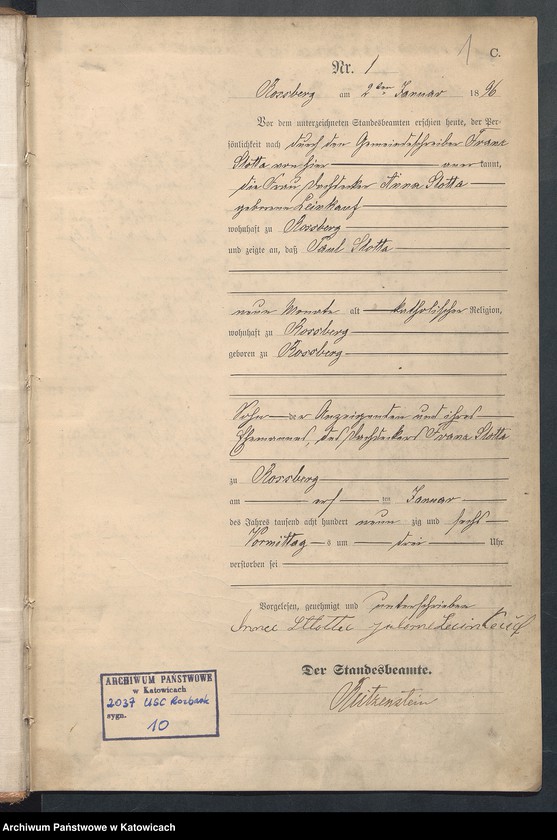 1 C.
Nr. 1
Rossberg am 2ten Januar 1896
Vor dem unterzeichneten Standesbeamten erschien heute, der Per-
sönlichkeit nach durch den Gemeindeschreiber Franz
Slotta von hier aner kannt,
die Frau Dachdecker Anna Slotta
geborene Leinkauf
wohnhaft zu Rossberg
und zeigte an, daß Paul Slotta
neun Monate alt katholischer Religion,
wohnhaft zu Rossberg
geboren zu Rossberg
Sohn der Anzeigenden und ihres
Ehemannes, des Dachdeckers Franz Slotta
zu Rossberg
am ersten Januar
des Jahres tausend acht hundert neun zig und sechs
Vormittag s um drei Uhr
verstorben sei
Vorgelesen, genehmigt und unterschrieben
Anna Slotta
Der Standesbeamte.
Reitzenstein
ARCHIWUM PAŃSTWOWE
w Katowicach
2037 USC Rozbark
sygn.
10
Archiwum Państwowe w Katowicach